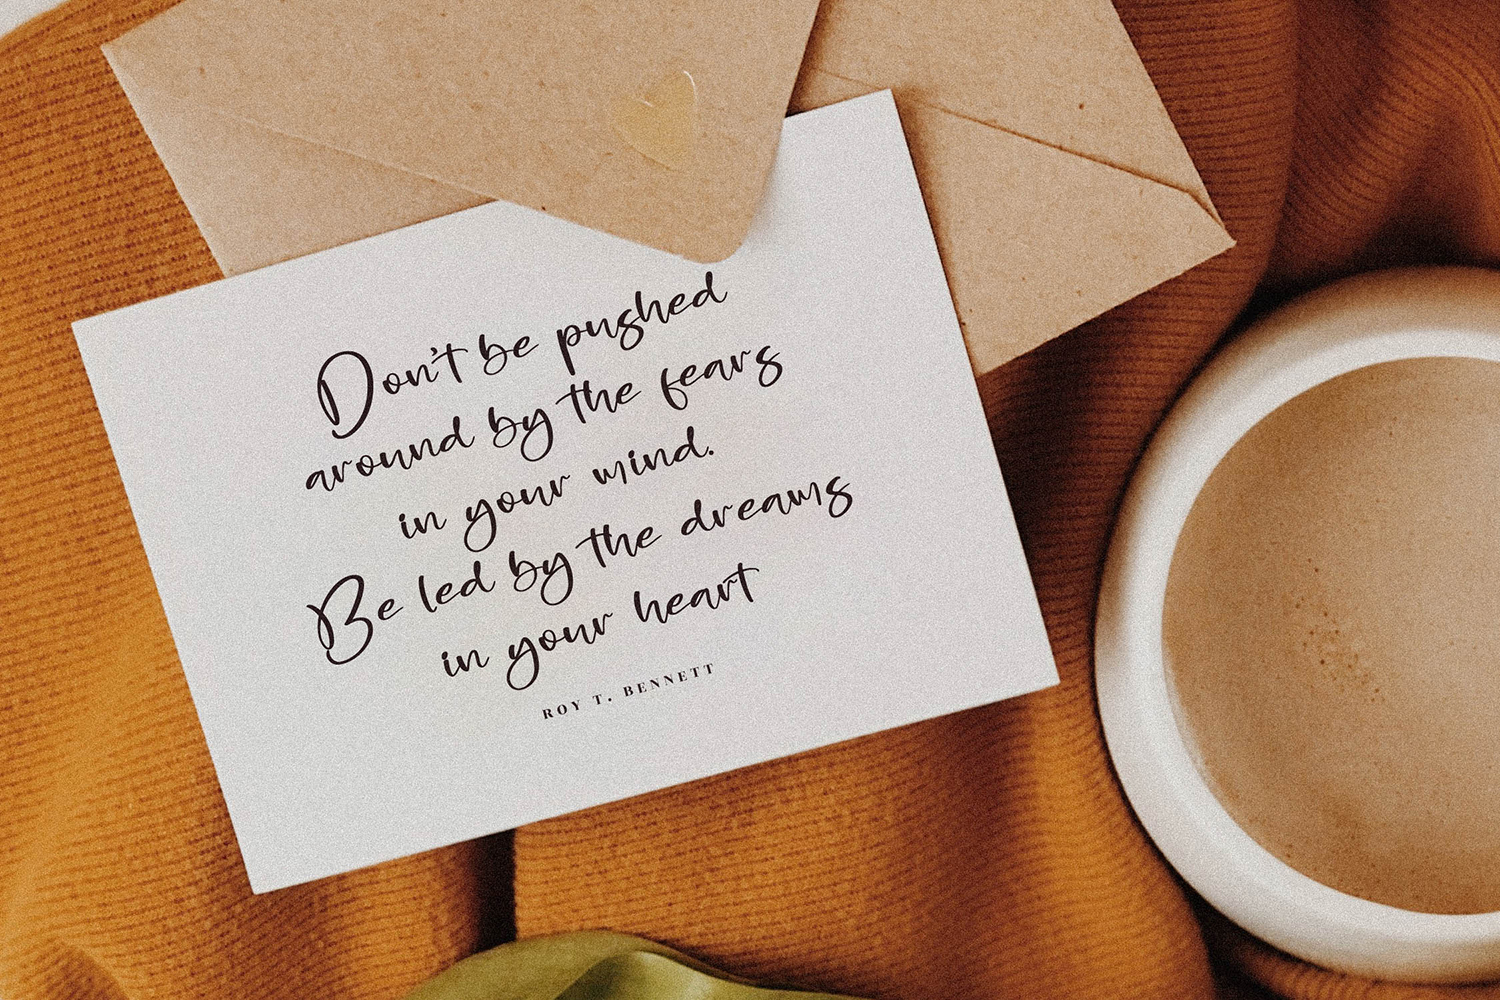 Don't be pushed
around by the fears
in your mind.
Be led by the dreams
in your heart
ROY T. BENNETT